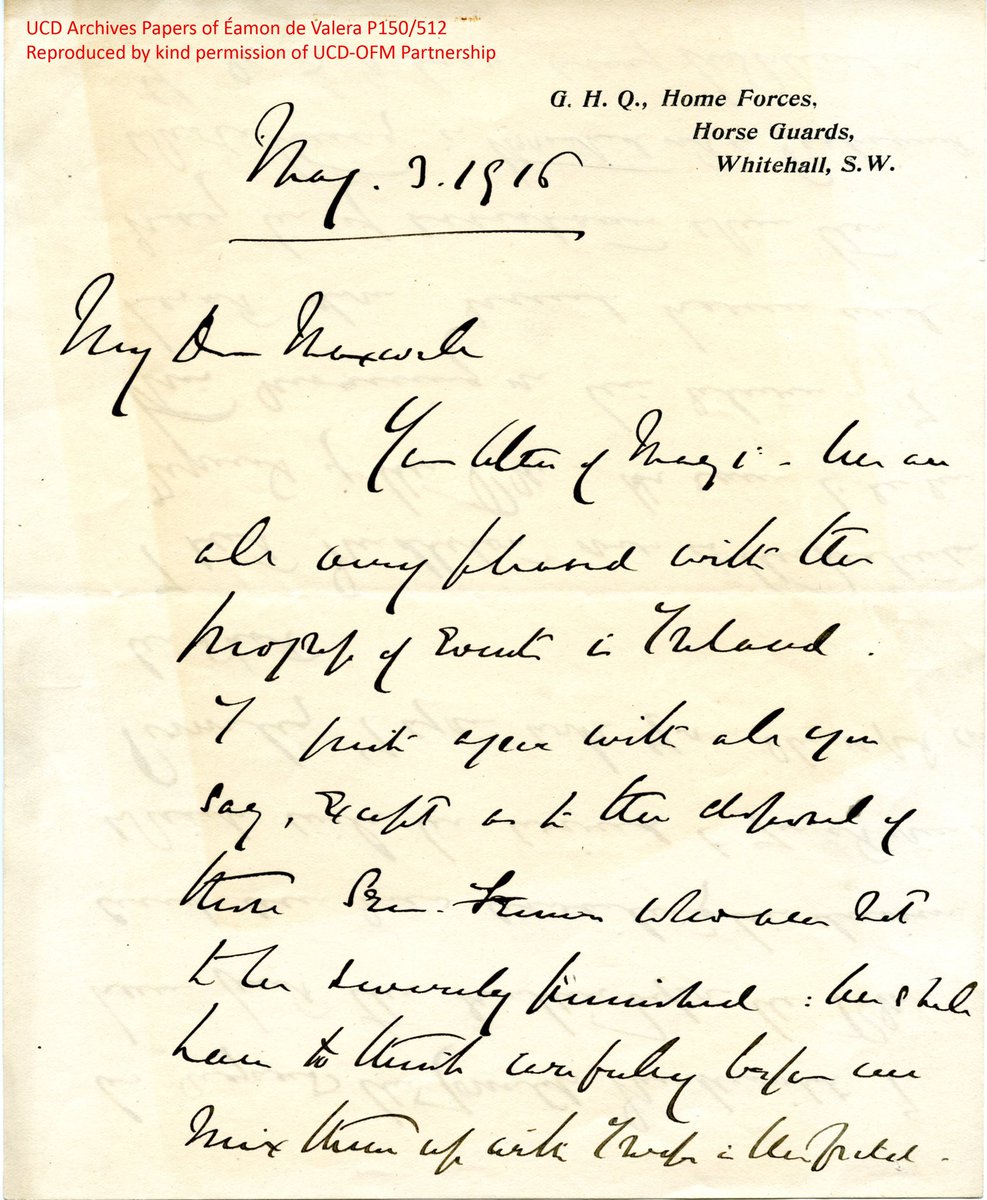 UCD Archives Papers of Éamon de Valera P150/512
Reproduced by kind permission of UCD-OFM Partnership
G. H. Q., Home Forces,
Horse Guards,
Whitehall, S.W.
May. 3. 1916
My Dear Maxwell
Your letter of May 1 - We are
all very pleased with the
progress of Events in Ireland.
I quite agree with all you
say, Except as to the disposal of
those Sein-Feiners who are not
to be severely punished: we shall
have to think carefully before we
mix them up with Troops in the field.